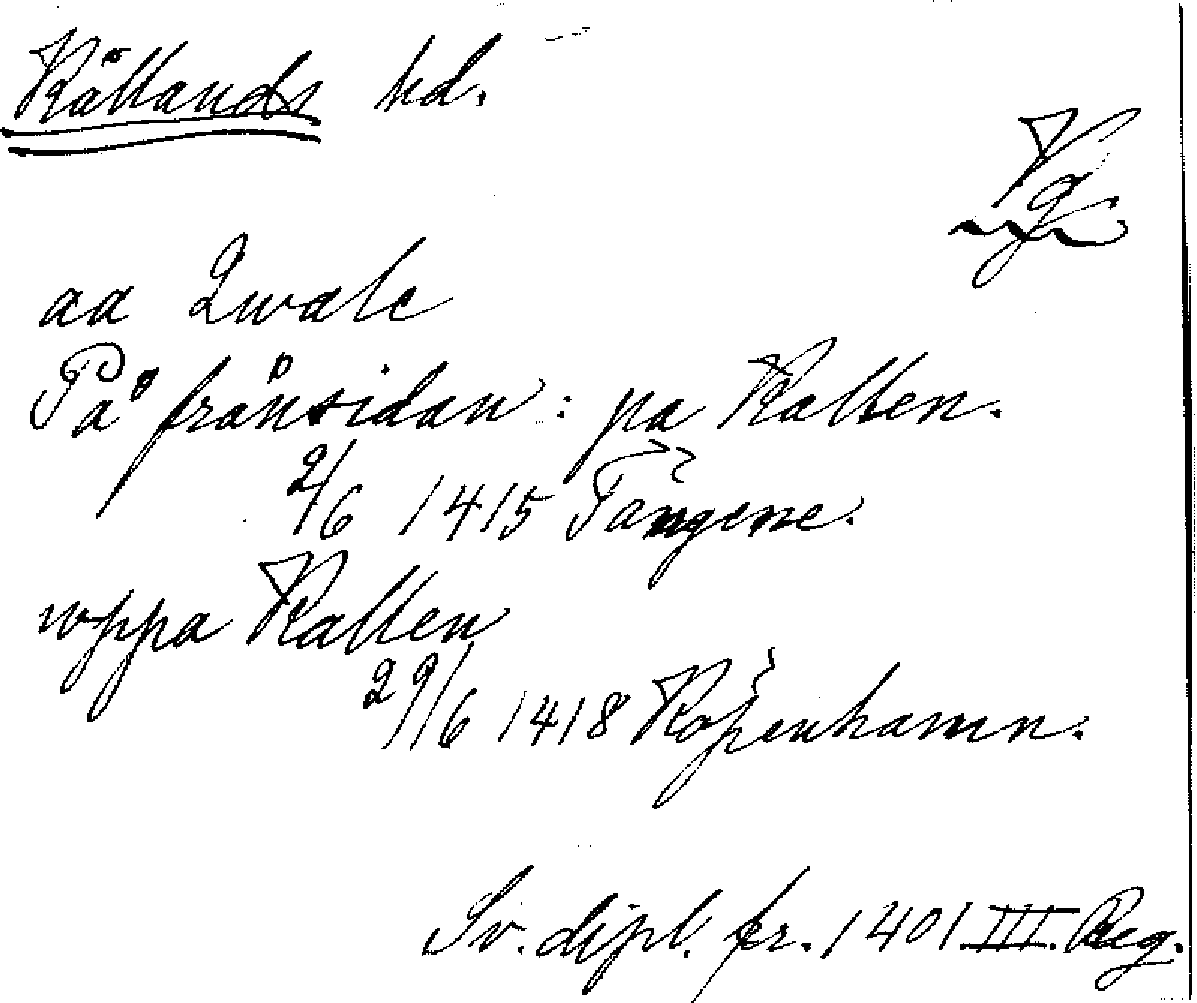 Kållands hd.
Vg
aa Qwale
På frånsidan: pa Kallen.
2/6 1415 Tängene.
uppa Kallen
29/6 1418 Köpenhamn.
Sv. dipl. fr. 1401 III. Reg.